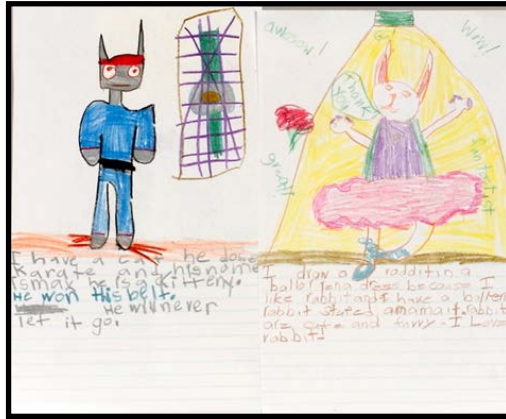 I have a cat he dose
Karate and his name
is max he is a kitteny.
He won this belt.
He willnever
let it go.
awosom!
Wow!
Thank
You
great!
fantastic
I drow a radditin a
ballerena dress because I
like rabbitands have a ballern
rabbit stuted amamalt. rabbit
are cute and furry. I Love
rabbit!